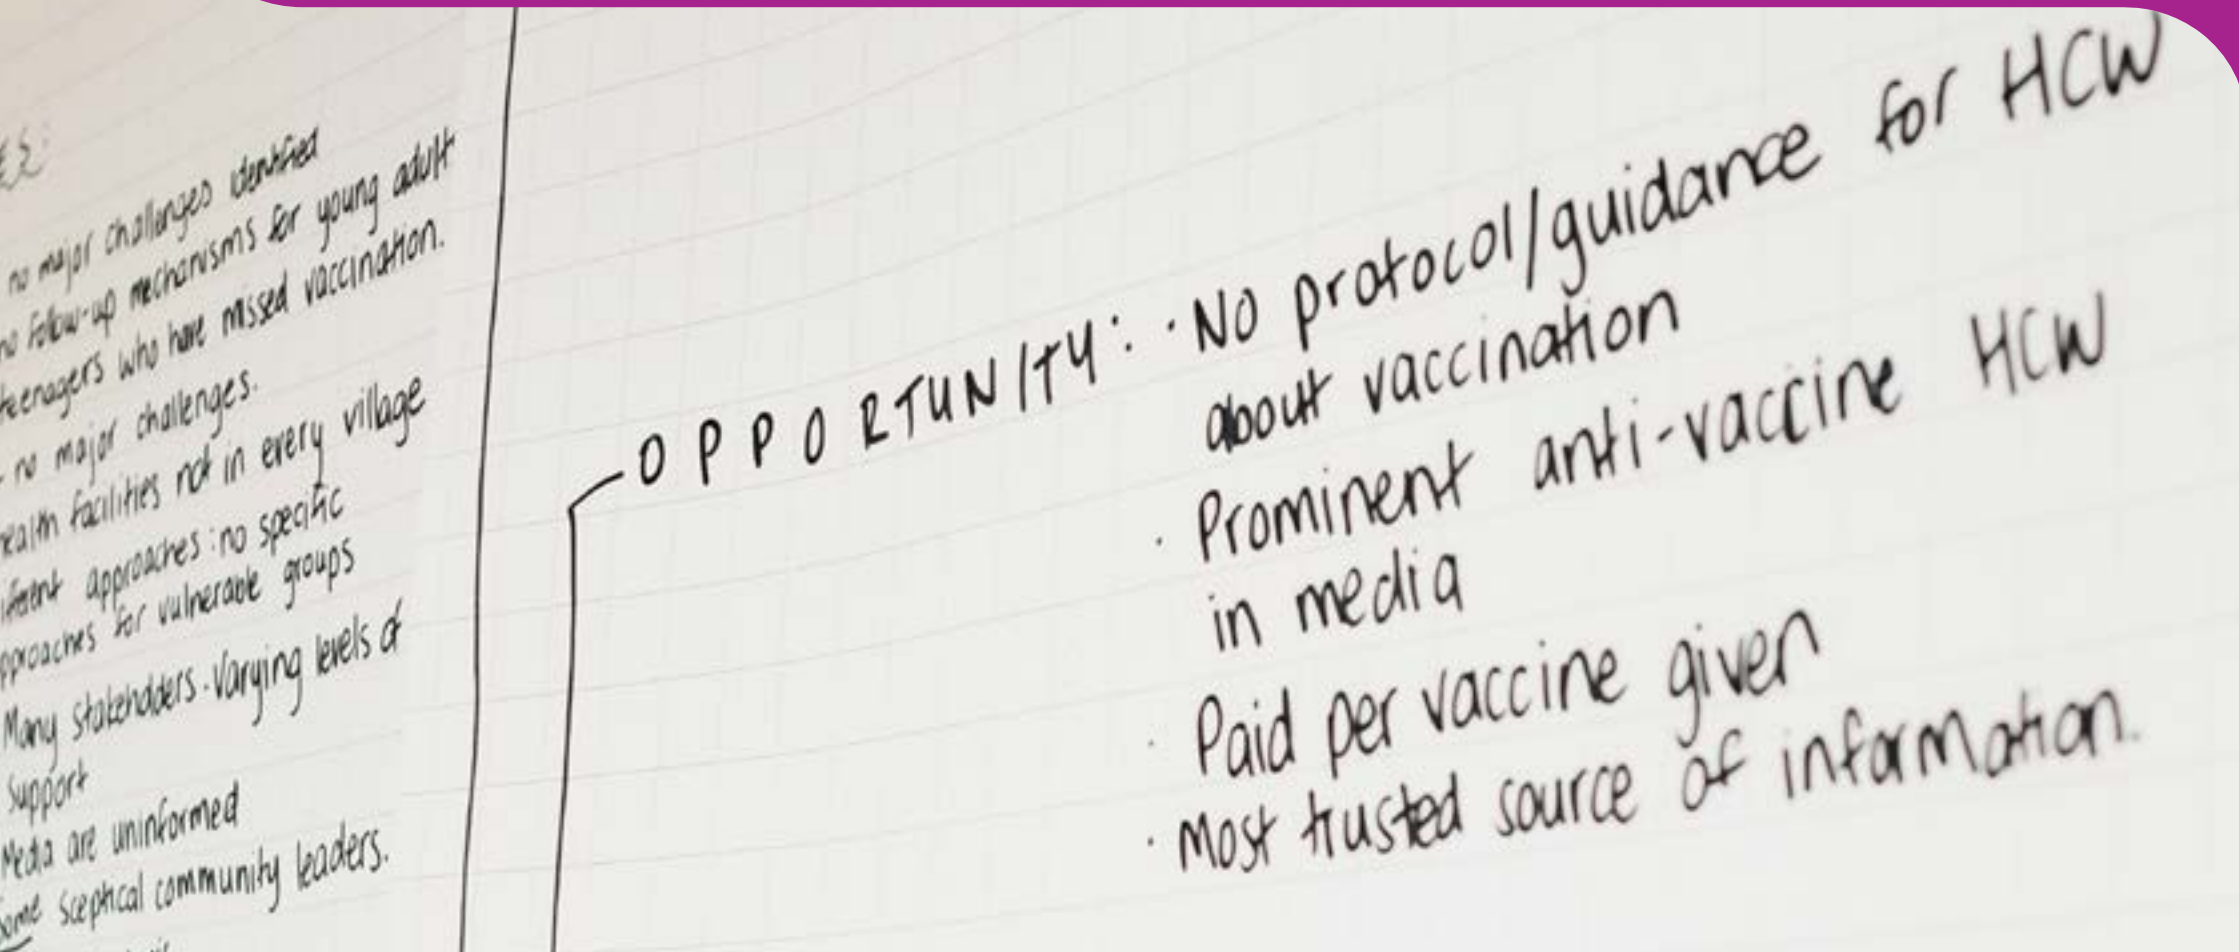 no major challenges identified
no follow-up mechanisms for young adult
teenagers who have missed vaccination.
- no major challenges.
health facilities not in every village
approaches: no specific
approaches for vulnerable groups
Many stakeholders. Varying levels of
support
Media are uninformed
Some sceptical community leaders.
OPPORTUNITY: · No protocol/guidance for HCW
about vaccination
· Prominent anti-vaccine HCW
in media
· Paid per vaccine given
· Most trusted source of information.